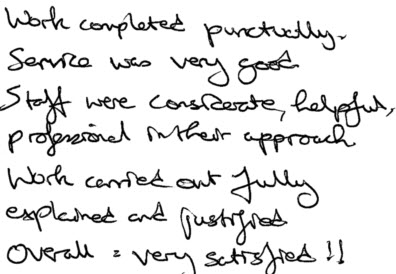 Work completed punctually.
Service was very good
Staff were considerate, helpful,
professional in their approach
Work carried out fully
explained and justified
Overall = very satisfied !!